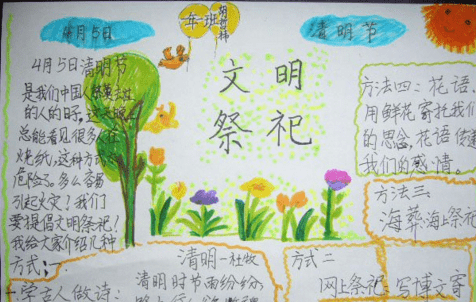 4月5日
一年班
清明节
4月5日清明节
是我们中国人
的人的日子,
总能看见很多人在
烧纸,这种方式
危险了。多么容易
引起火灾?我们
要提倡文明祭祀!
我给大家介绍几种
方式:
一.学古人做诗:
文明
祭祀
清明-杜牧
清明时节雨纷纷,
方式二
网上祭祀:写博文寄
方法三
海葬海上祭祀
方法四:花语.
用鲜花寄托我们
的思念,花语传递
我们的感情。